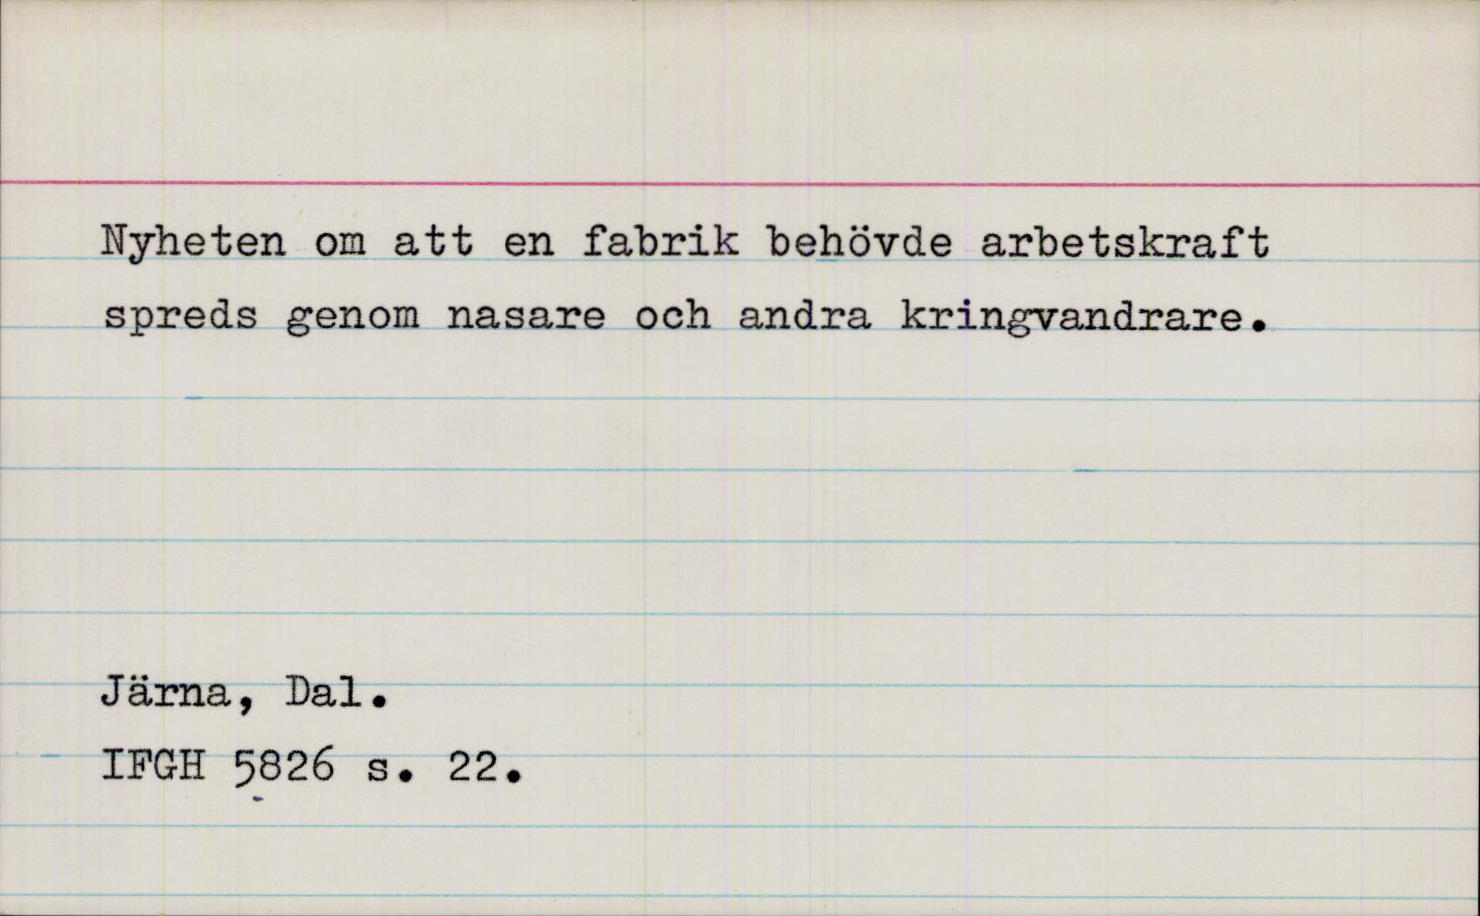 Nyheten om att en fabrik behövde arbetskraft
spreds genom nasare och andra kringvandrare.
Järna, Dal.
IFGH 5826 s. 22.